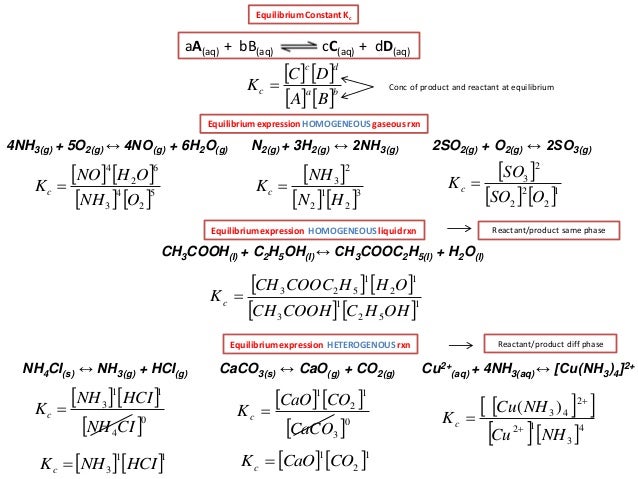 Equilibrium Constant Kc
aA(aq) + bB(aq) ⇌ cC(aq) + dD(aq)
Kc = [C]^c [D]^d / [A]^a [B]^b
Conc of product and reactant at equilibrium
Equilibrium expression HOMOGENEOUS gaseous rxn
4NH3(g) + 5O2(g) ↔ 4NO(g) + 6H2O(g)
N2(g) + 3H2(g) ↔ 2NH3(g)
2SO2(g) + O2(g) ↔ 2SO3(g)
Kc = [NO]^4 [H2O]^6 / [NH3]^4 [O2]^5
Kc = [NH3]^2 / [N2]^1 [H2]^3
Kc = [SO3]^2 / [SO2]^2 [O2]^1
Equilibrium expression HOMOGENEOUS liquid rxn
Reactant/product same phase
CH3COOH(l) + C2H5OH(l) ↔ CH3COOC2H5(l) + H2O(l)
Kc = [CH3COOC2H5]^1 [H2O]^1 / [CH3COOH]^1 [C2H5OH]^1
Equilibrium expression HETEROGENOUS rxn
Reactant/product diff phase
NH4Cl(s) ↔ NH3(g) + HCl(g)
CaCO3(s) ↔ CaO(g) + CO2(g)
Cu2+(aq) + 4NH3(aq) ↔ [Cu(NH3)4]2+
Kc = [NH3]^1 [HCI]^1 / [NH4CI]^0
Kc = [CaO]^1 [CO2]^1 / [CaCO3]^0
Kc = [ [Cu(NH3)4]^2+ ] / [Cu^2+]^1 [NH3]^4
Kc = [NH3]^1 [HCI]^1
Kc = [CaO]^1 [CO2]^1